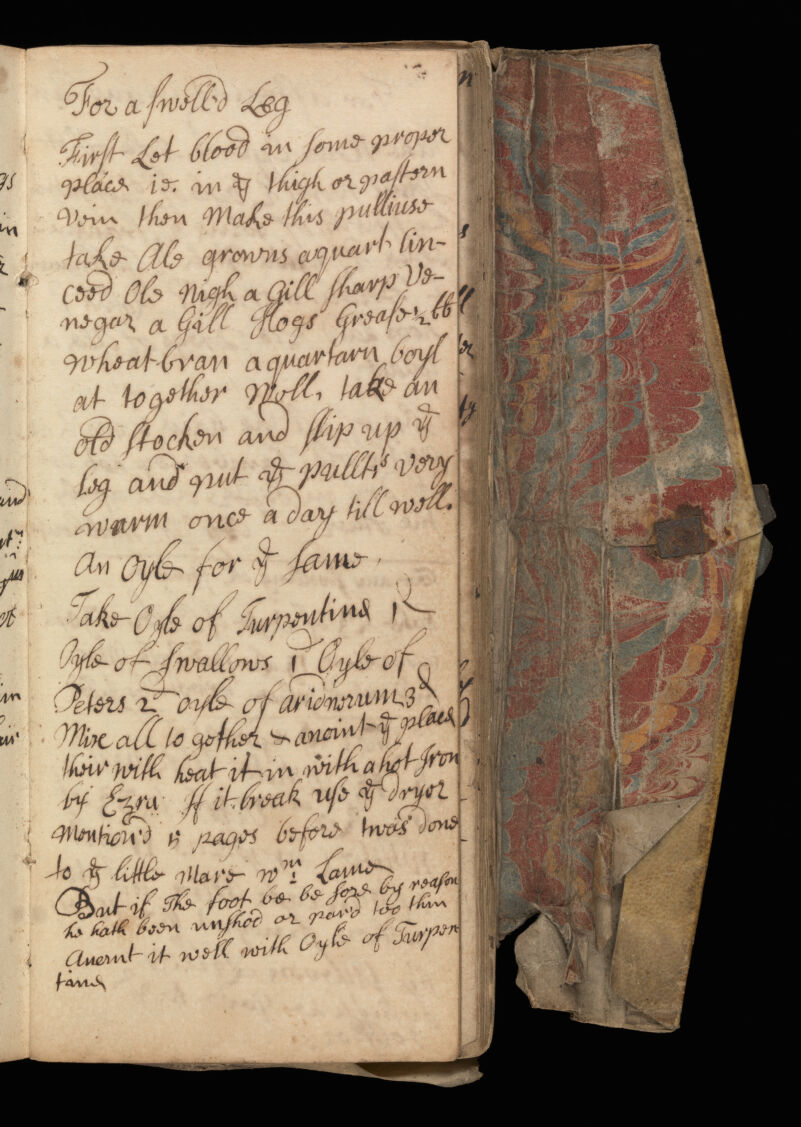 For a swell'd Leg
First Let blood in some proper
place ie. in ye thigh or pastern
vein then Make this pulliuse
take Ale growns a quart lin-
ceed Ole nigh a Gill sharp Ve-
negar a Gill Hogs Grease ½ lb
wheat bran a quartarn boyl
at together Well, take an
old stocken and slip up ye
leg and put ye pullts very
warm once a day till well.
An oyle for ye same.
Take Oyle of Turpentine 1d
Oyle of swallows 1d Oyle of
Peters 2d oyle of 3d
Mixe all to gether & anoint ye place
their with heat it in with a hot Iron
by Ezra If it break use ye dryer
Mention'd pages before twas done
to ye little Mare wm Lame
But if The foot be be sore by reason
he hath been unshod or par'd too thin
Anernt it well with Oyle of Turpen
tine